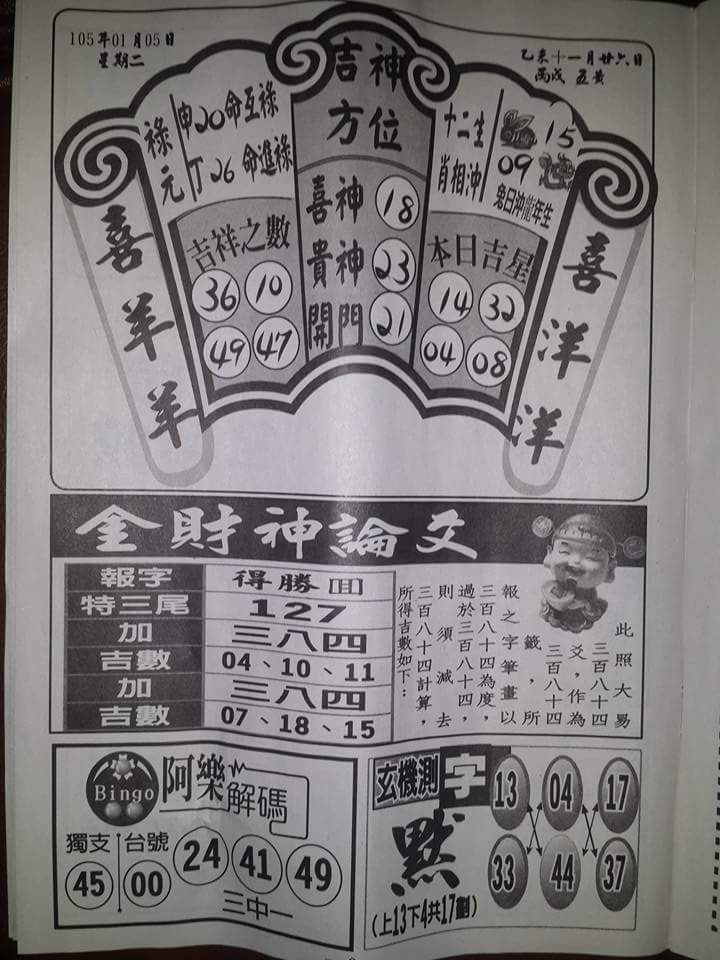 105年01月05日
星期二
乙未十一月廿六日
丙戌 五黃
吉神
方位
喜神 18
貴神 23
開門 21
祿元
申20命互祿
丁26命進祿
吉祥之數
36 10
49 47
十二生
肖相沖
15
09
兔日沖龍年生
本日吉星
14 32
04 08
喜羊羊
喜洋洋
金財神論爻
報字 得勝回
特三尾 127
加 三八四
吉數 04、10、11
加 三八四
吉數 07、18、15
此照大易
三百八十四
爻，作為
三百八十四
籤，所
報之字筆畫以
三百八十四為度，
過於三百八十四，
則須減去
三百八十四計算，
所得吉數如下：
Bingo
阿樂解碼
獨支 台號
45 00
24 41 49
三中一
玄機測字
默
(上13下4共17劃)
13 04 17
33 44 37